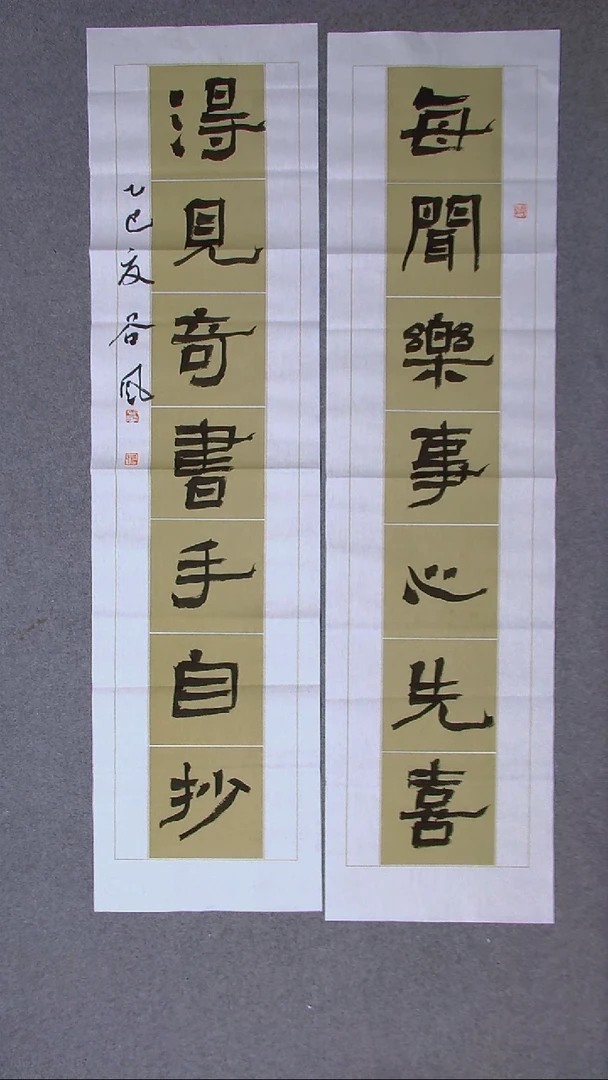 每聞樂事心先喜
得見奇書手自抄
乙巳夏谷风